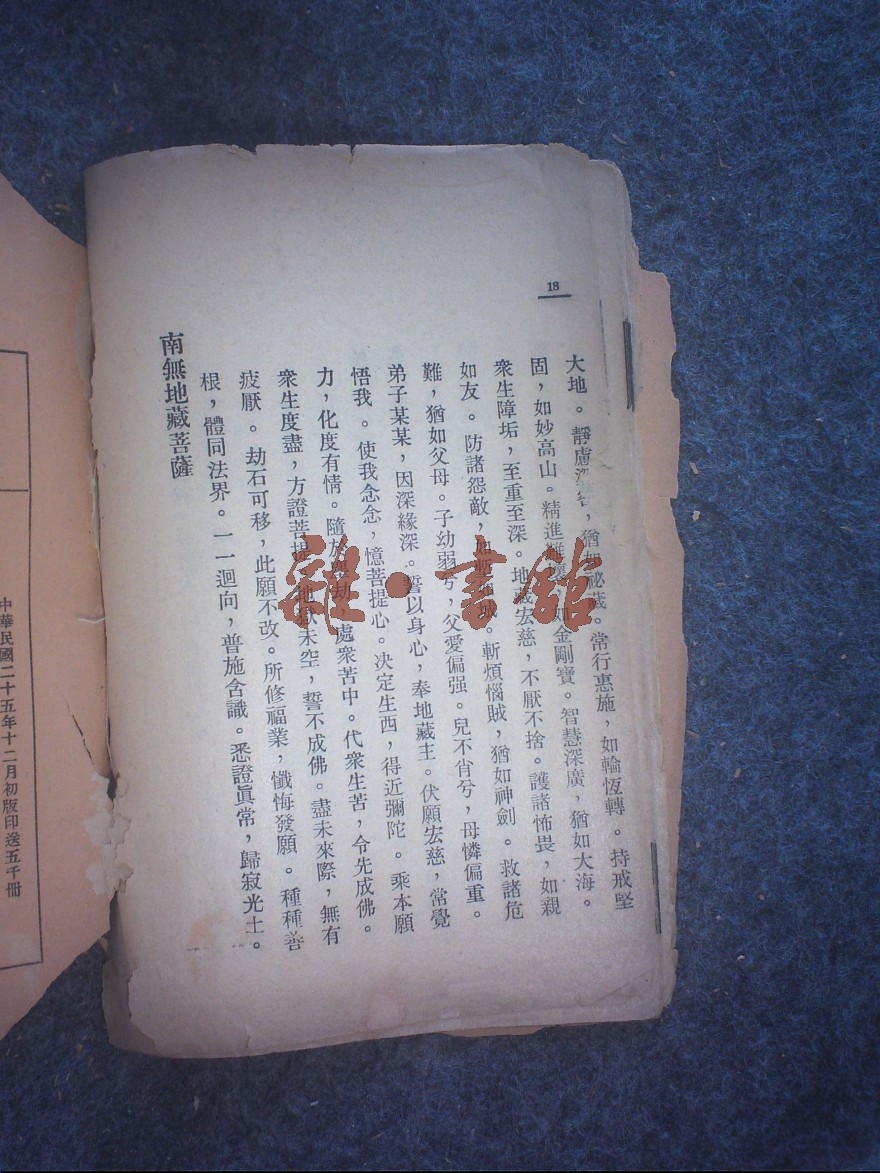 18
大地。靜慮深密，猶如祕藏。常行惠施，如輪恆轉。持戒堅
固，如妙高山。精進難壞，如金剛寶。智慧深廣，猶如大海。
衆生障垢，至重至深。地藏宏慈，不厭不捨。護諸怖畏，如親
如友。防諸怨敵，如塹如城。斬煩惱賊，猶如神劍。救諸危
難，猶如父母。子幼弱兮，父愛偏强。兒不肖兮，母憐偏重。
弟子某某，因深緣深。誓以身心，奉地藏主。伏願宏慈，常覺
悟我。使我念念，憶菩提心。決定生西，得近彌陀。乘本願
力，化度有情。隨於塵劫，處衆苦中。代衆生苦，令先成佛。
衆生度盡，方證菩提。地獄未空，誓不成佛。盡未來際，無有
疲厭。劫石可移，此願不改。所修福業，懺悔發願。種種善
根，體同法界。一一迴向，普施含識。悉證眞常，歸寂光土。
南無地藏菩薩
中華民國二十五年十二月初版印送五千冊
雜·書館